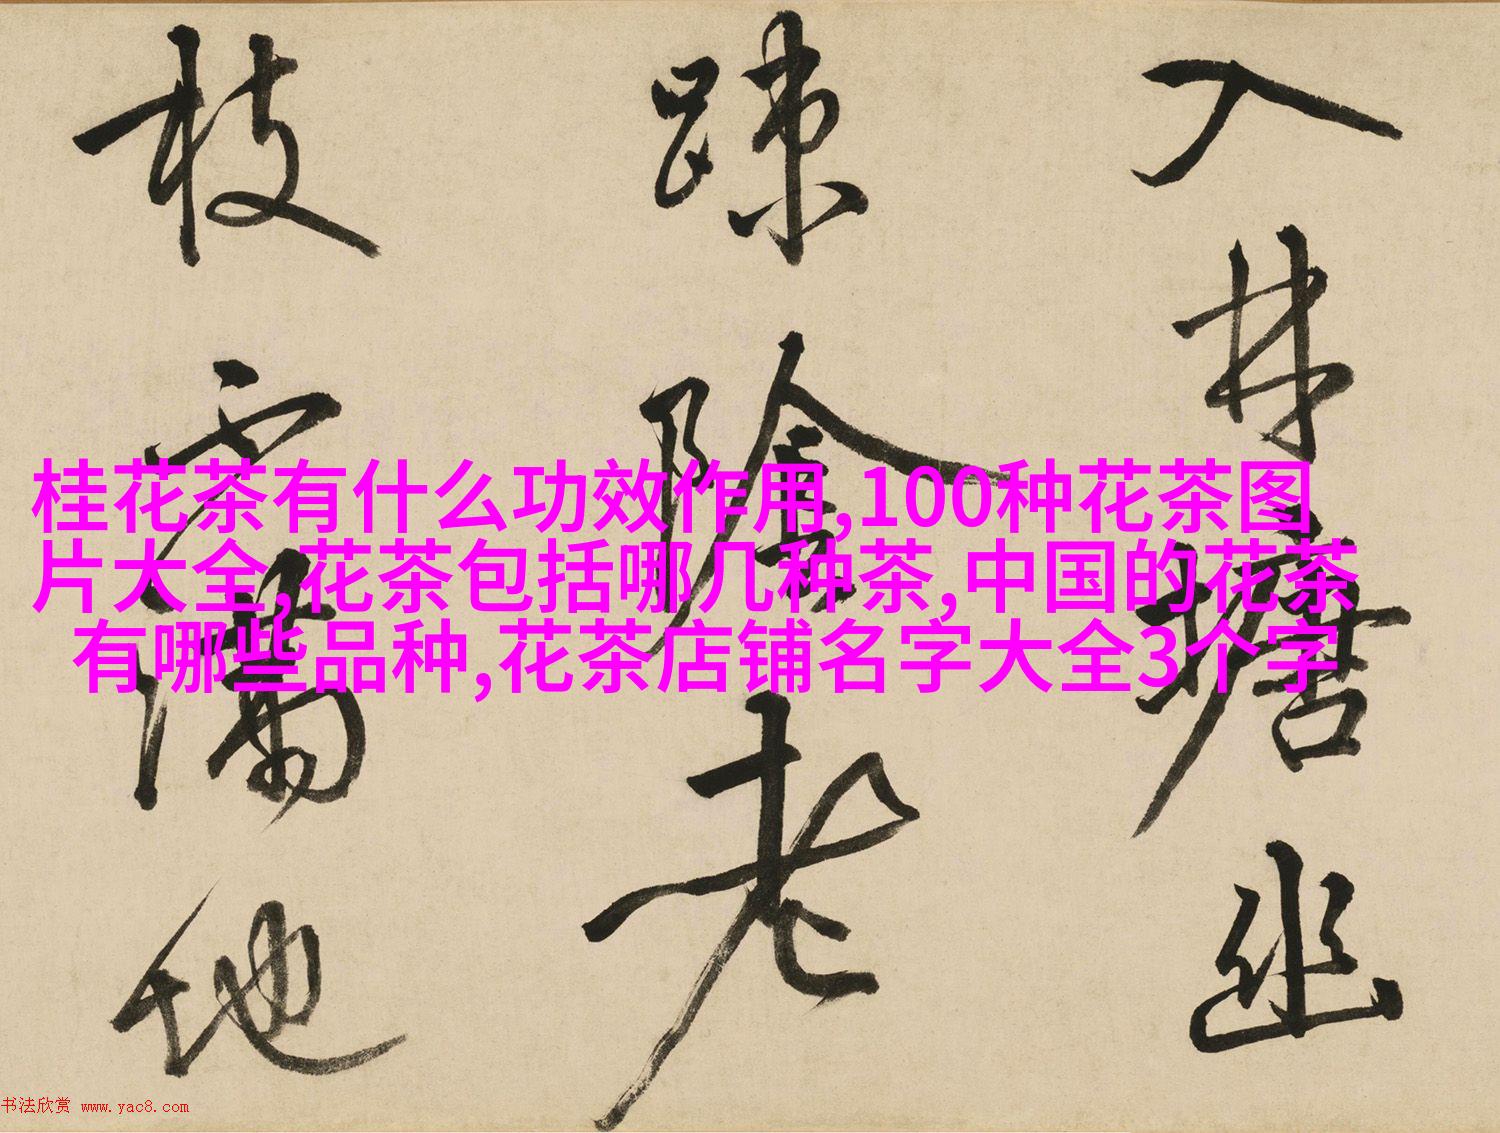 入林塘幽
踈陰老
枝
满地
桂花茶有什么功效作用,100种花茶图
片大全,花茶包括哪几种茶,中国的花茶
有哪些品种,花茶店铺名字大全3个字
书法欣赏 www.yac8.com